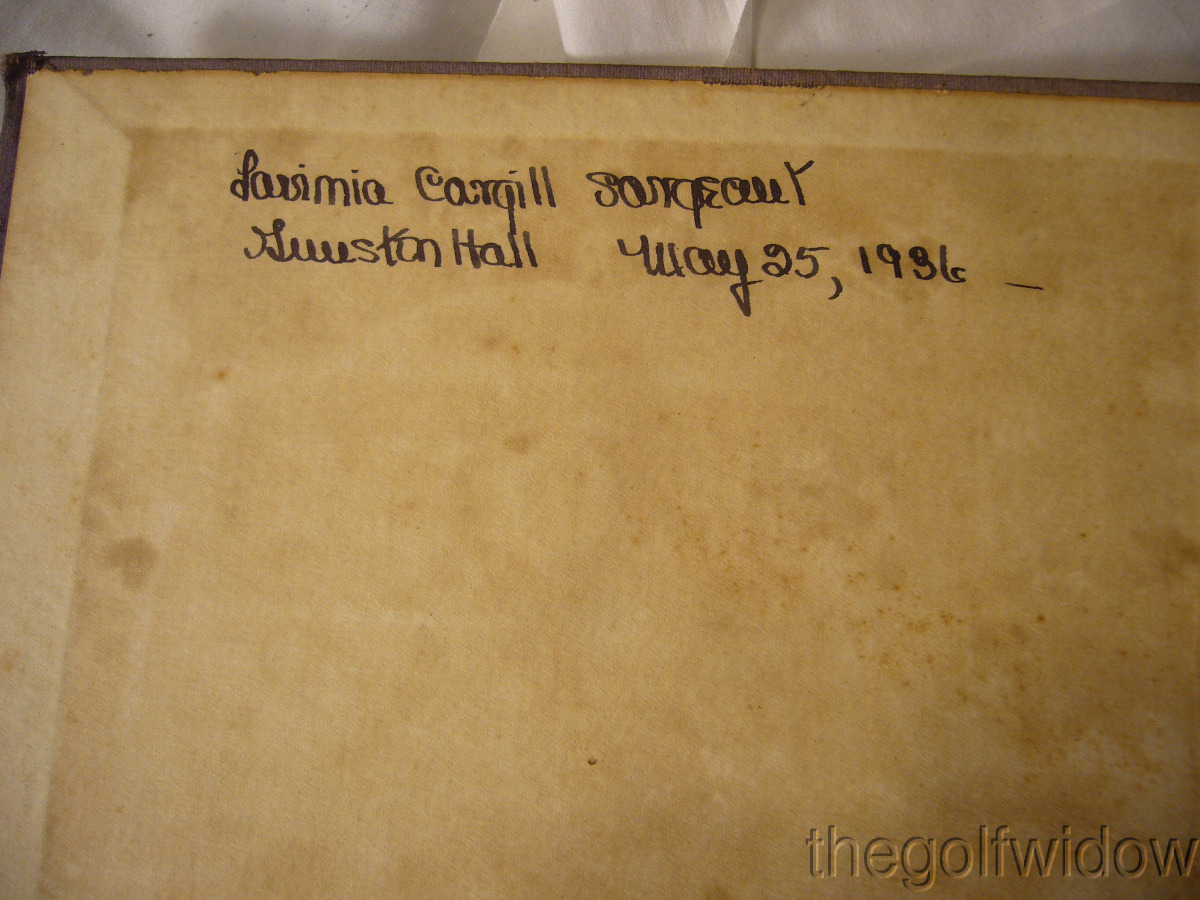 Lavinia Cargill Sargeant
Gunston Hall May 25, 1936 —
thegolfwidow